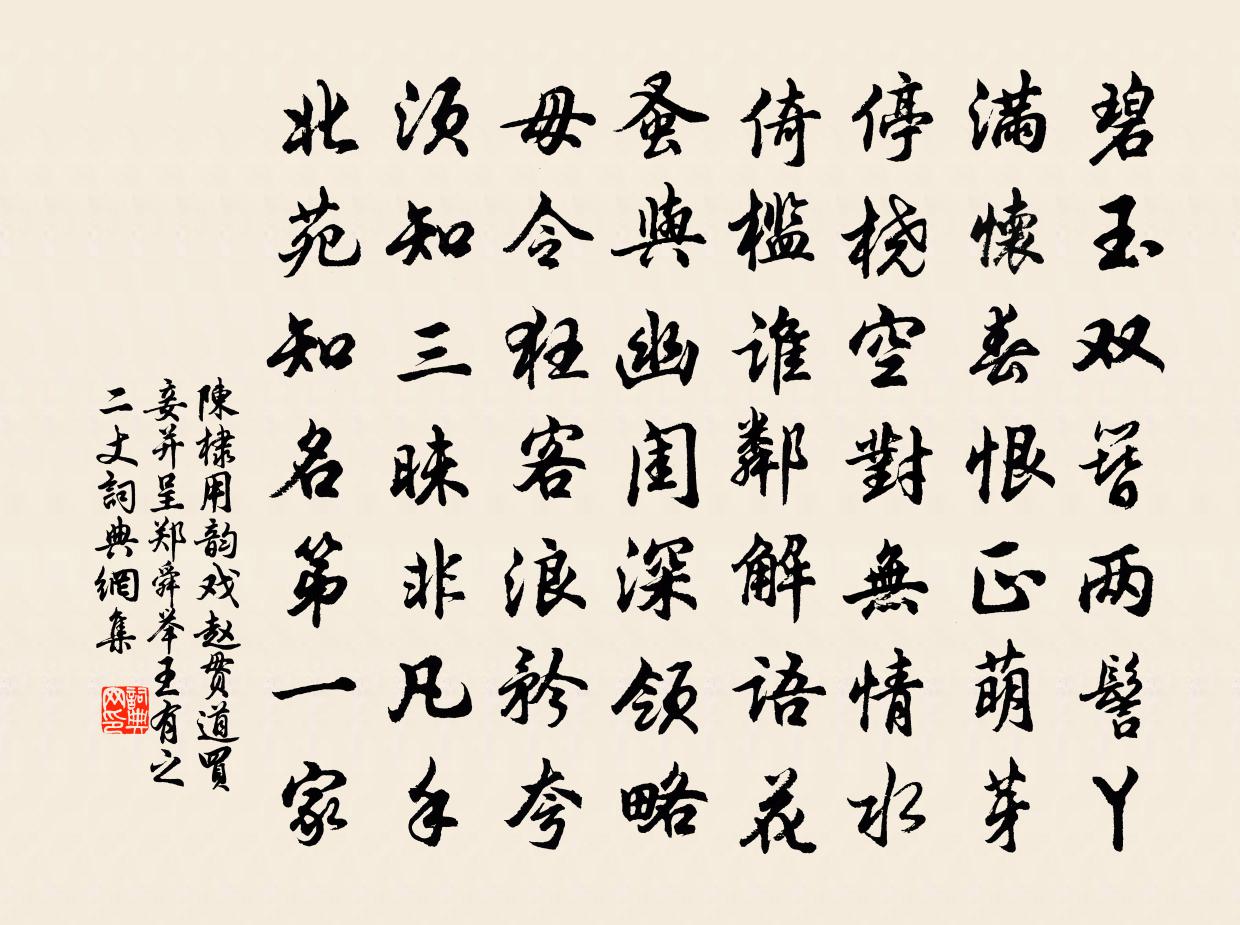 碧玉双簪两髻丫
满懷春恨正萌芽
停桡空對無情水
倚槛谁鄰解语花
蚤與幽闺深领略
毋令狂客浪矜夸
须知三昧非凡手
北苑知名第一家
陳棣用韵戏赵贯道買
妾并呈郑舜举王有之
二丈詞典網集
詞典网印